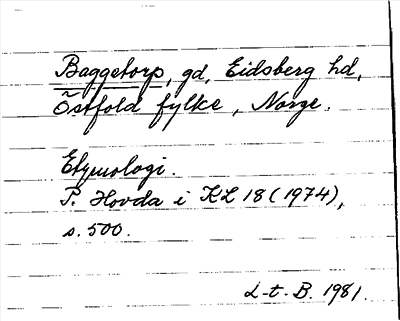 Baggetorp, gd, Eidsberg hd,
Östfold fylke, Norge.
Etymologi.
P. Hovda i KL 18 (1974),
s. 500.
L-t-B. 1981.